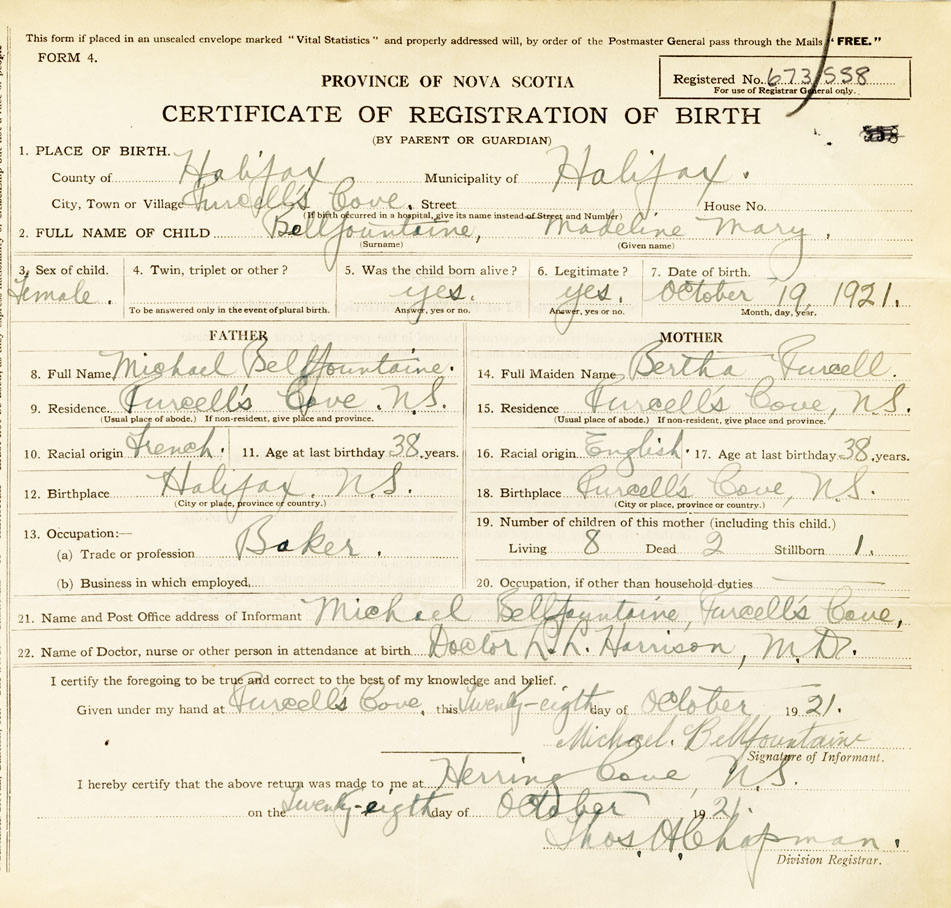 This form if placed in an unsealed envelope marked "Vital Statistics" and properly addressed will, by order of the Postmaster General pass through the Mails "FREE."
FORM 4.
Registered No. 673/558
For use of Registrar General only.
PROVINCE OF NOVA SCOTIA
CERTIFICATE OF REGISTRATION OF BIRTH
(BY PARENT OR GUARDIAN)
1. PLACE OF BIRTH.
County of Halifax Municipality of Halifax.
City, Town or Village Purcell's Cove. Street House No.
(If birth occurred in a hospital, give its name instead of Street and Number)
2. FULL NAME OF CHILD Bellfountaine, Madeline Mary.
(Surname) (Given name)
3. Sex of child. 4. Twin, triplet or other? 5. Was the child born alive? 6. Legitimate? 7. Date of birth.
Female. yes. yes. October 19, 1921.
To be answered only in the event of plural birth. Answer, yes or no. Answer, yes or no. Month, day, year.
FATHER
8. Full Name Michael Bellfountaine.
9. Residence Purcell's Cove. N.S.
(Usual place of abode.) If non-resident, give place and province.
10. Racial origin French. 11. Age at last birthday 38 years.
12. Birthplace Halifax, N.S.
(City or place, province or country.)
13. Occupation:—
(a) Trade or profession Baker.
(b) Business in which employed,
MOTHER
14. Full Maiden Name Bertha Purcell.
15. Residence Purcell's Cove, N.S.
(Usual place of abode.) If non-resident, give place and province.
16. Racial origin English. 17. Age at last birthday 38, years.
18. Birthplace Purcell's Cove, N.S.
(City or place, province or country.)
19. Number of children of this mother (including this child.)
Living 8 Dead 2 Stillborn 1.
20. Occupation, if other than household duties
21. Name and Post Office address of Informant Michael Bellfountaine, Purcell's Cove,
22. Name of Doctor, nurse or other person in attendance at birth Doctor L.L. Harrison, M.D.
I certify the foregoing to be true and correct to the best of my knowledge and belief.
Given under my hand at Purcell's Cove, this Twenty-eigth day of October 1921.
Michael. Bellfountaine
Signature of Informant.
I hereby certify that the above return was made to me at Herring Cove, N.S.
on the Twenty-eigth day of October 1921.
Thos. H Chapman.
Division Registrar.